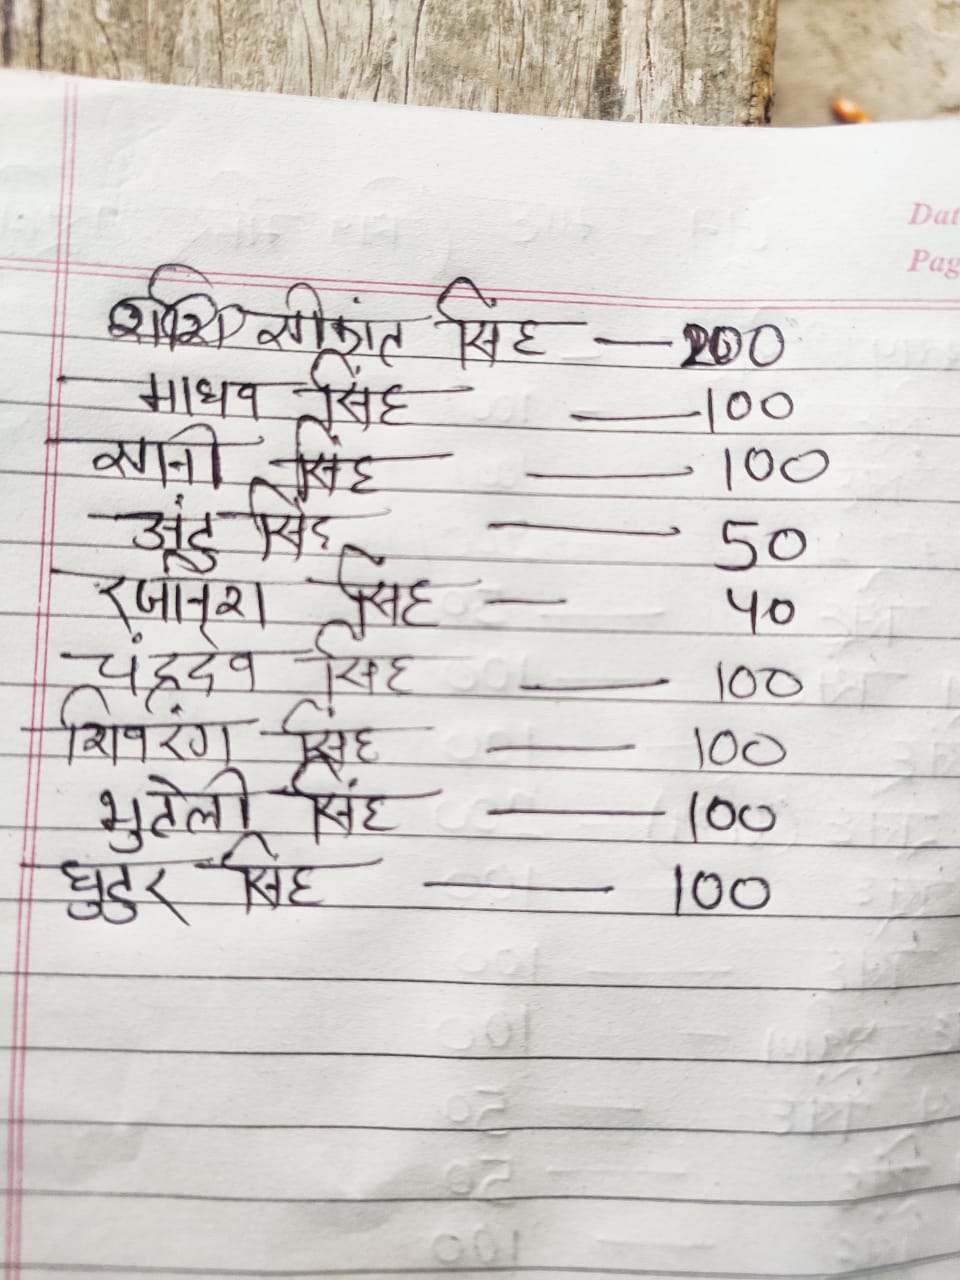 Dat
Pag
शशि सीकांत सिंह — 200
माधव सिंह — 100
सानी सिंह — 100
अंदु सिंह — 50
रजनिश सिंह — 40
चंद्रदेव सिंह — 100
शिवरंग सिंह — 100
भुटेली सिंह — 100
घुटुर सिंह — 100